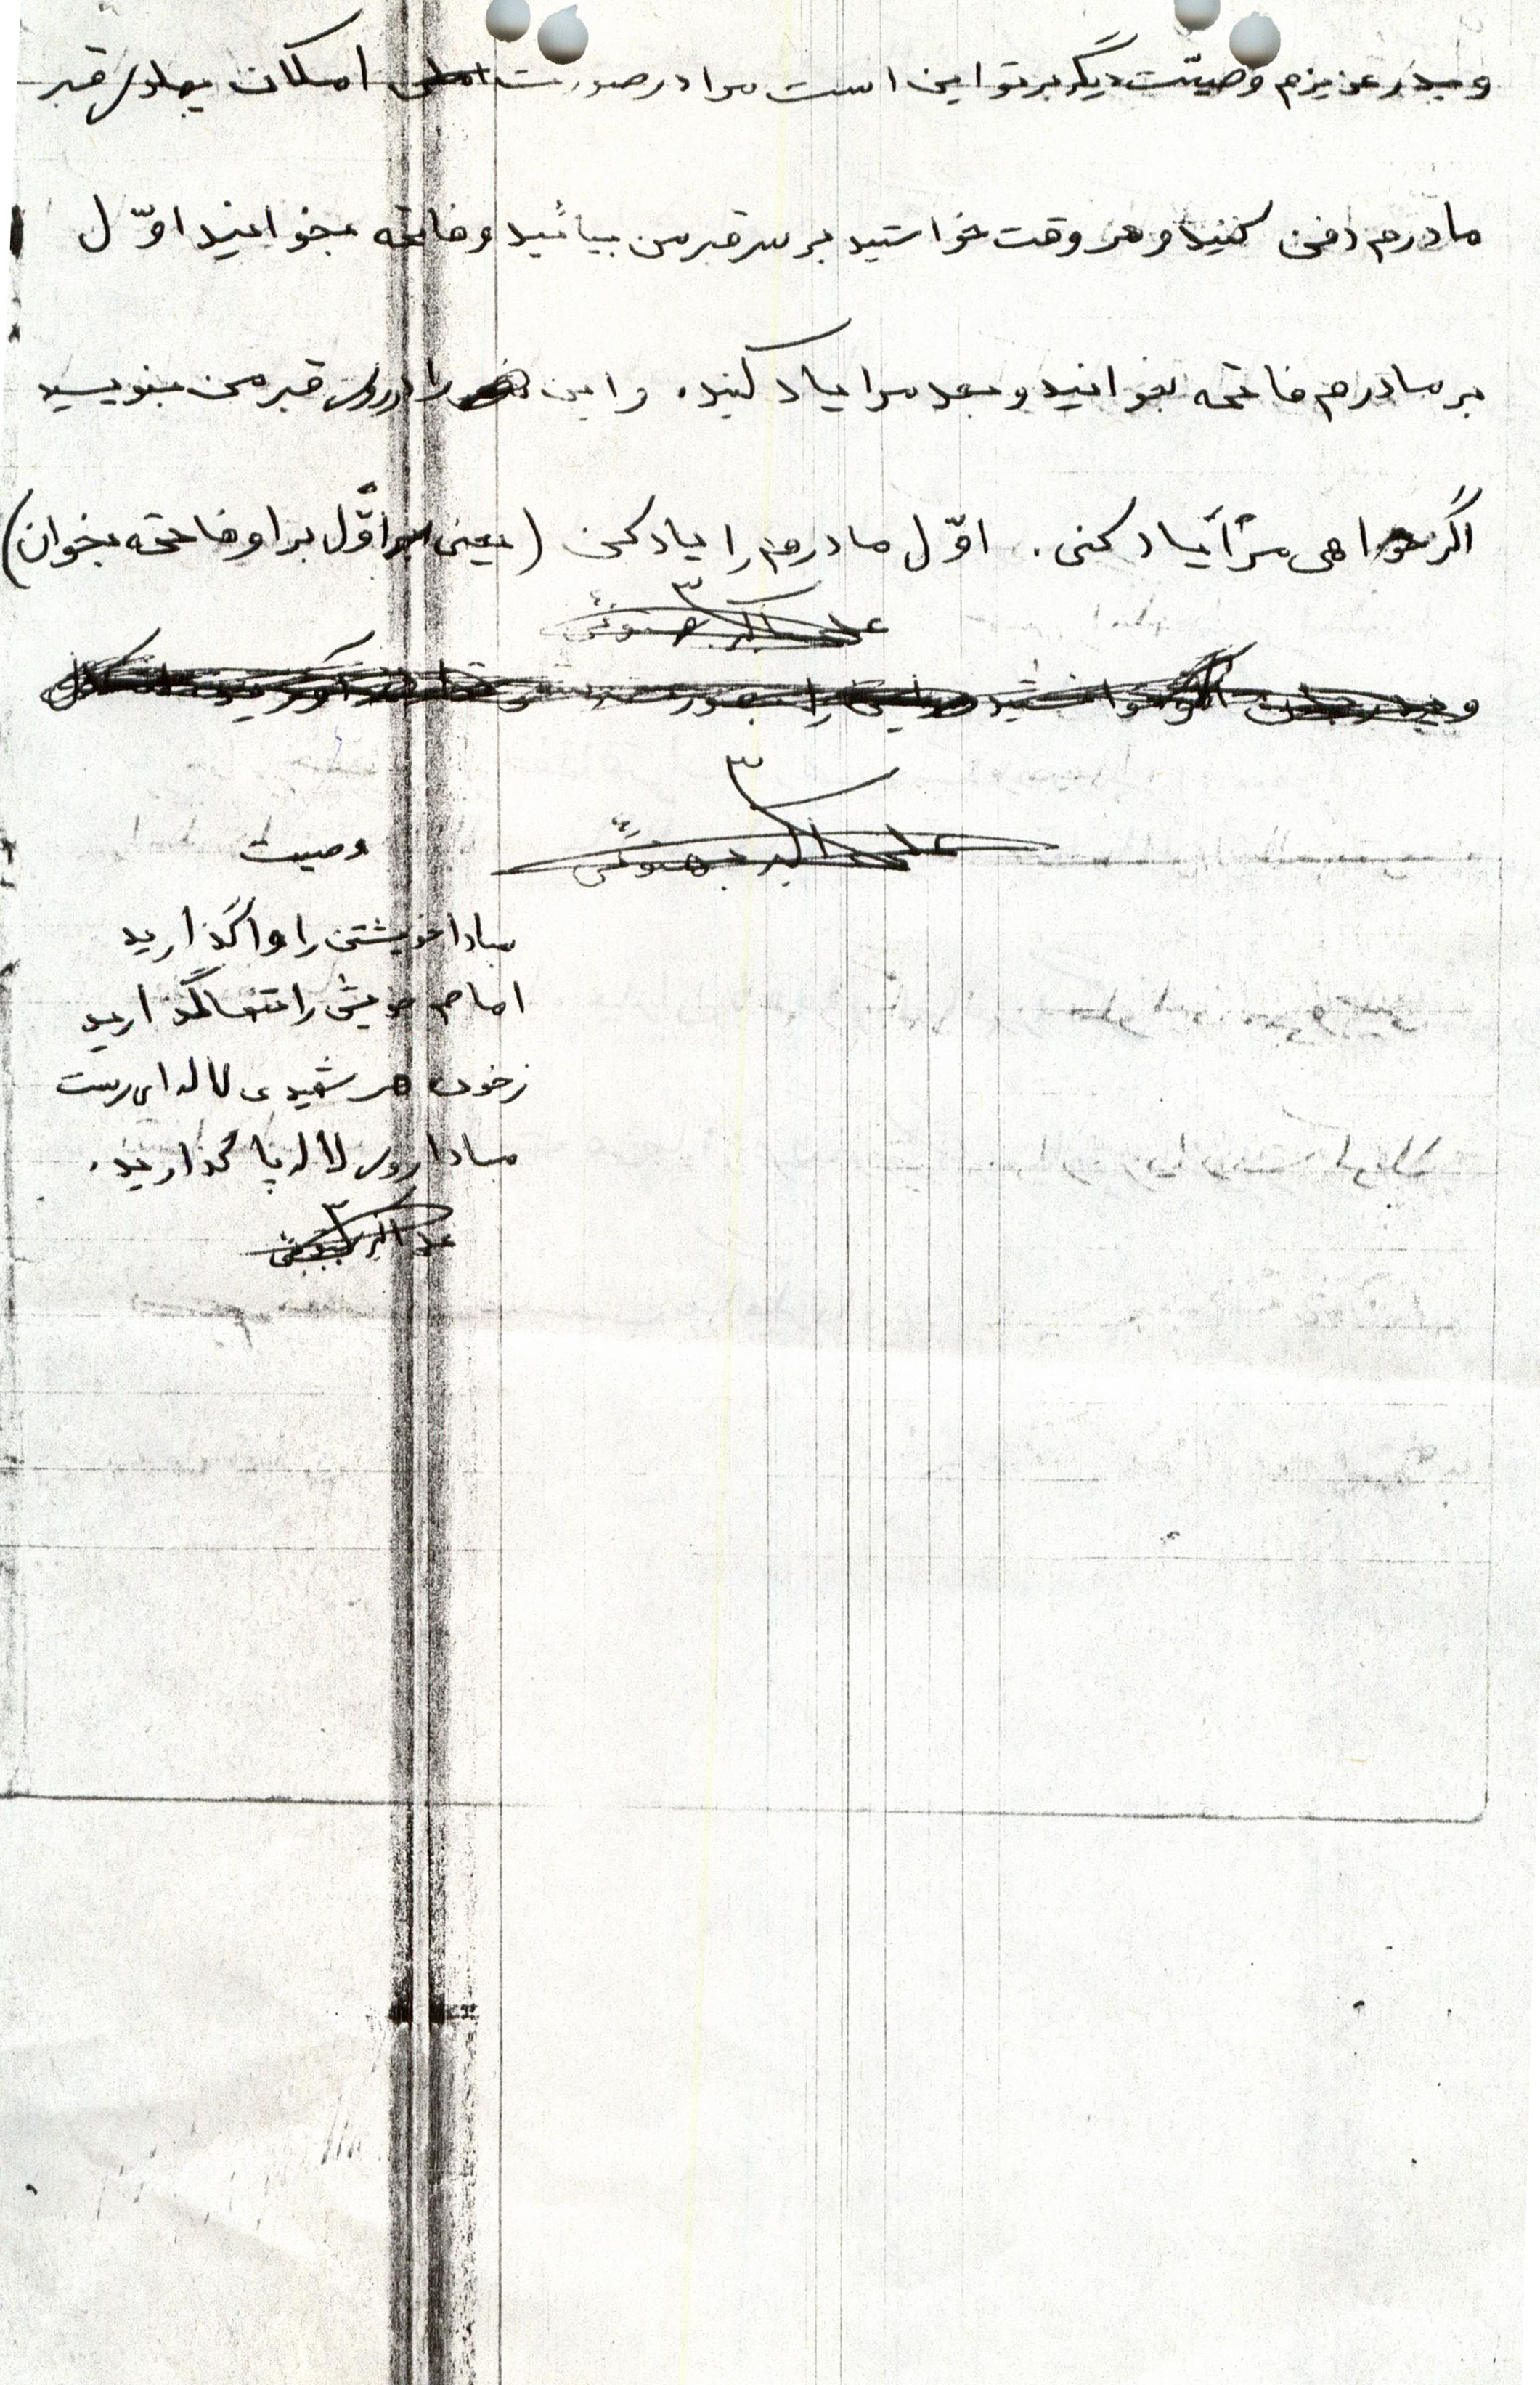 و پدر عزیزم وصیّت دیگر بر تو این است مرا در صورت امکان پهلوی قبر
مادرم دفن کنید و هر وقت خواستید بر سر قبر من بیائید و فاتحه بخوانید اوّل
بر مادرم فاتحه بخوانید و بعد مرا یاد کنید. و این را در روی قبر من بنویسید
اگر خواهی مرا یاد کنی. اوّل مادرم را یاد کن (یعنی اوّل برا و فاتحه بخوان)
علی اکبر
علی اکبر
وصیت
مبادا خویشتن را واگذارید
امام خویش را تنها گذارید
زخون هر شهیدی لاله ای رست
مبادا روی لاله پا گذارید.
علی اکبر